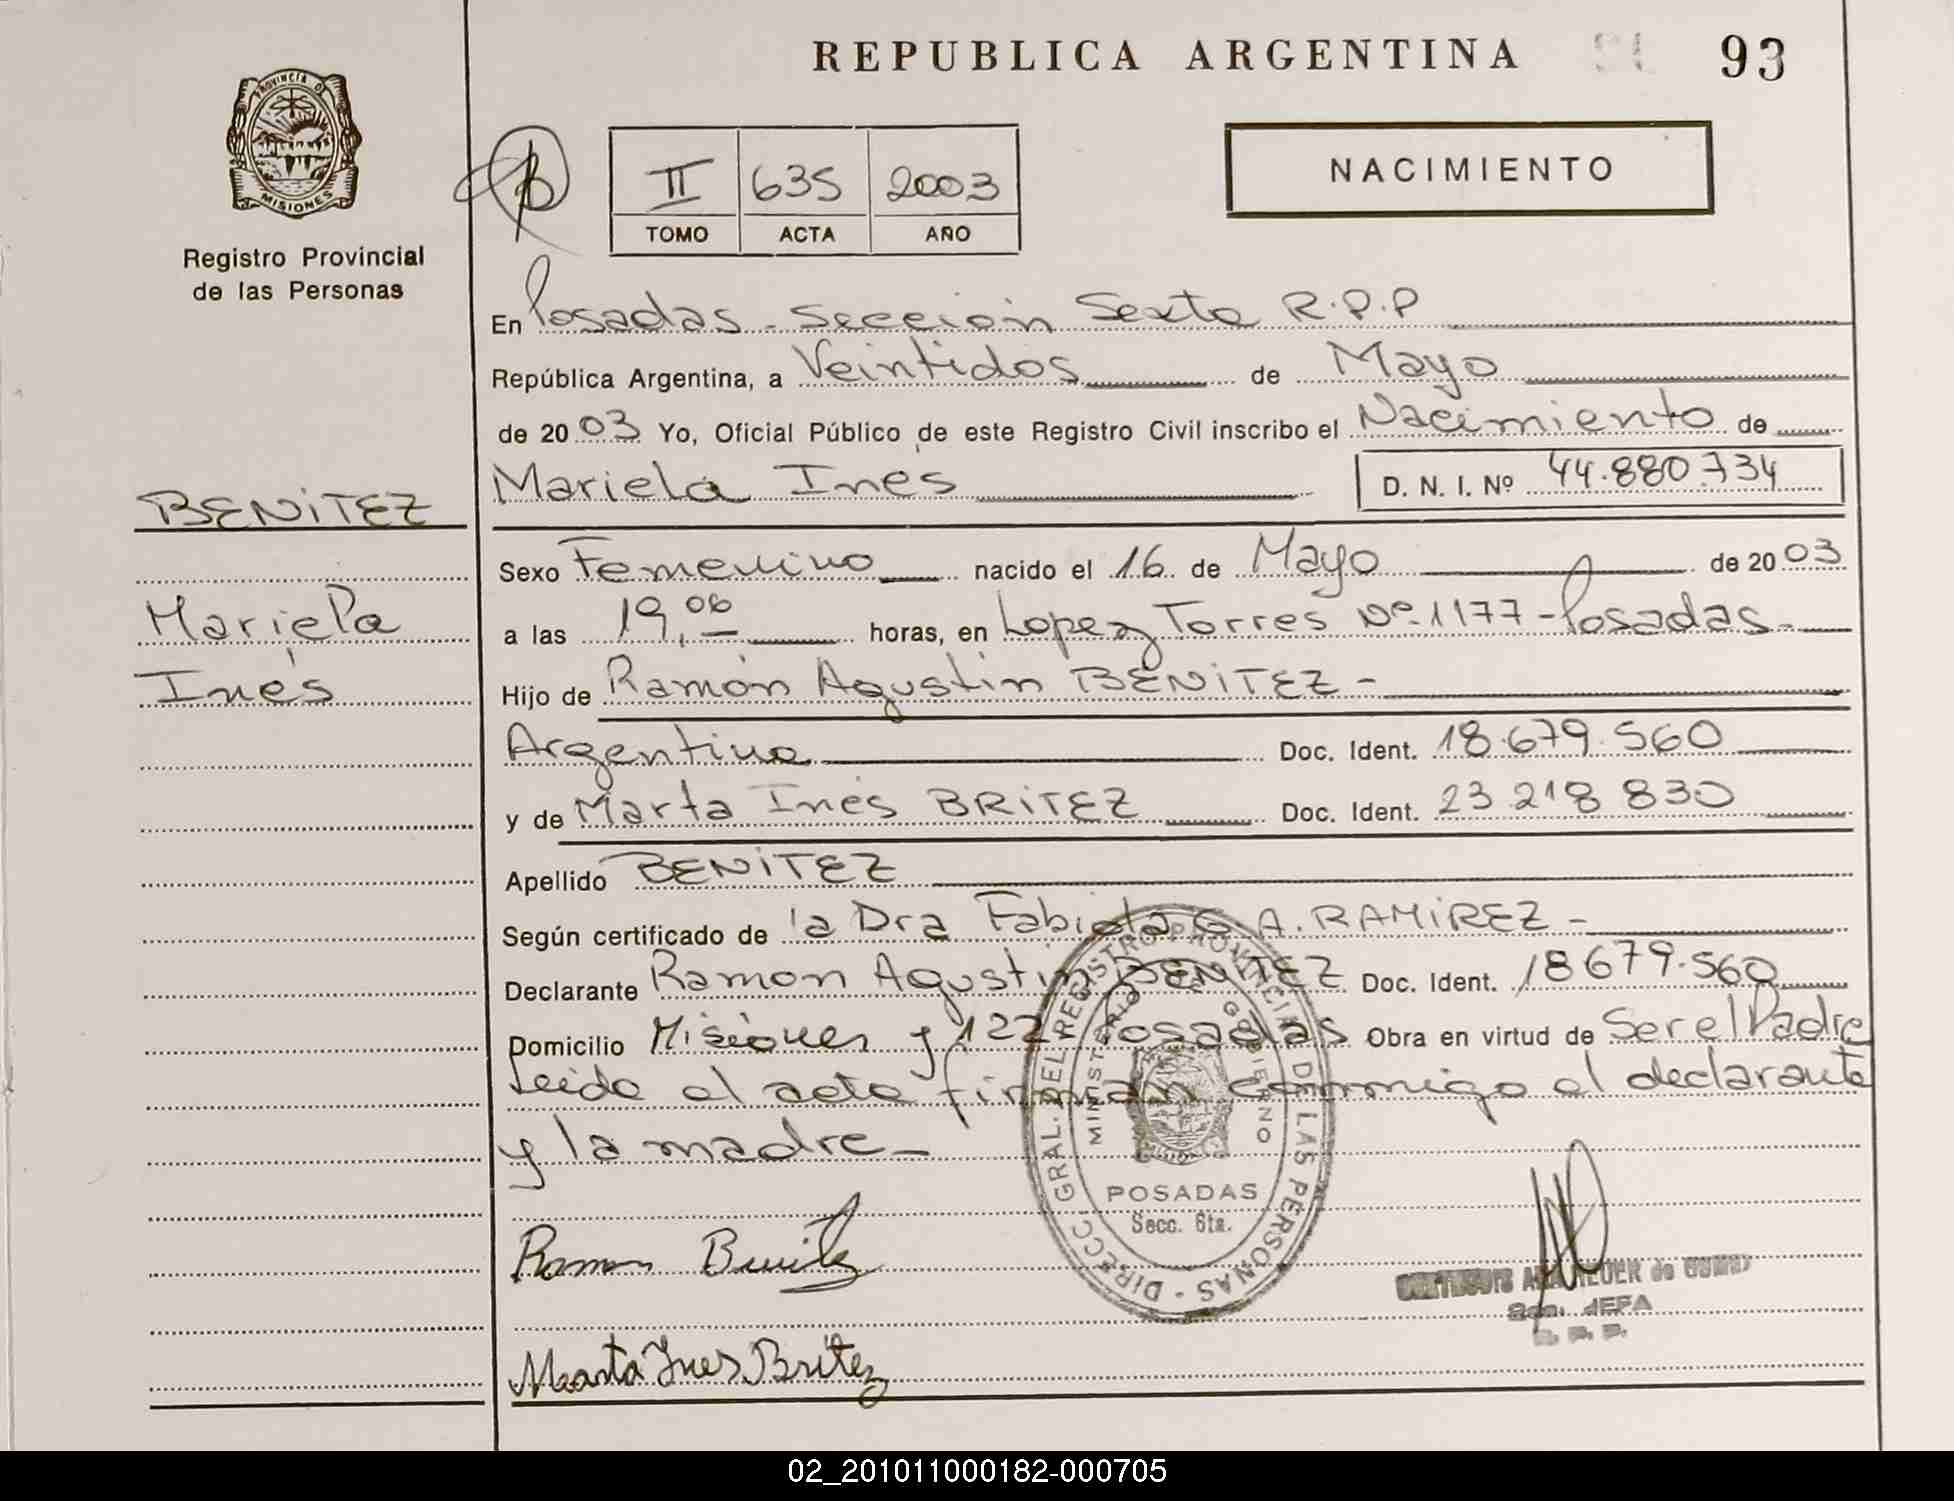 REPUBLICA ARGENTINA 93
PROVINCIA D
MISIONES
Registro Provincial
de las Personas
II 635 2003
TOMO ACTA AÑO
NACIMIENTO
En Posadas - Sección Sexta R.P.P
República Argentina, a Veintidos de Mayo
de 2003 Yo, Oficial Público de este Registro Civil inscribo el Nacimiento de
Mariela Inés D. N. I. Nº 44.880.734
BENITEZ
Mariela
Inés
Sexo Femenino nacido el 16 de Mayo de 2003
a las 19,06 horas, en Lopez Torres Nº 1177 - Posadas -
Hijo de Ramón Agustín BENITEZ -
Argentino Doc. Ident. 18.679.560
y de Marta Inés BRITEZ Doc. Ident. 23.218.830
Apellido BENITEZ
Según certificado de la Dra Fabiola G A. RAMIREZ -
Declarante Ramon Agustin BENITEZ Doc. Ident. 18679.560
Domicilio Misiones y 122 Posadas Obra en virtud de Ser el Padre
Leido el acta firman conmigo el declarante
y la madre -
DIRECC. GRAL. DEL REGISTRO PROVINCIAL DE LAS PERSONAS -
MINISTERIO DE GOBIERNO
POSADAS
Secc. 6ta.
Ramon Benitez
JEFA
Marta Ines Britez
02_201011000182-000705